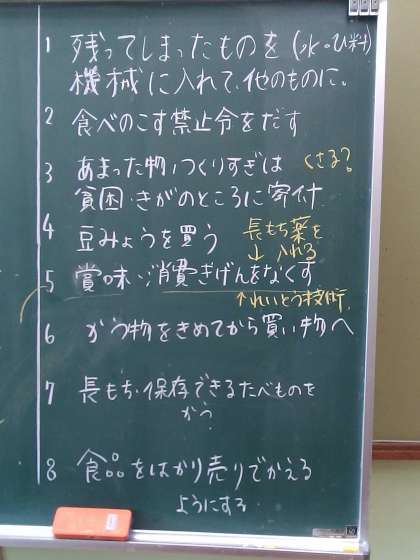 1 残ってしまったものを(水・ひ料)
機械に入れて、他のものに。
2 食べのこす禁止令をだす
3 あまった物、つくりすぎは くさる?
貧困・きがのところに寄付
4 豆みょうを買う 長もち薬を
↓ 入れる
5 賞味・消費きげんをなくす
↑れいとう技術
6 かう物をきめてから買い物へ
7 長もち・保存できるたべものを
かう?
8 食品をはかり売りでかえる
ようにする